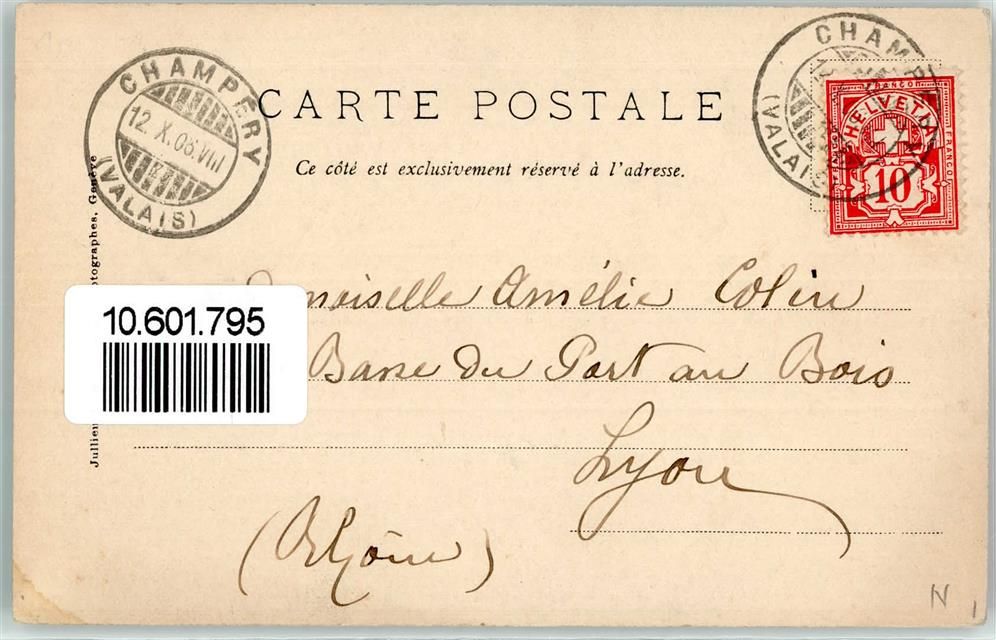 CHAMPÉRY
12.X.03.VIII
(VALAIS)
CHAMP
(VALAIS
CARTE POSTALE
Ce côté est exclusivement réservé à l'adresse.
FRANCO
HELVETIA
FRANCO
10
moiselle Amélie Colin
Basse du Port au Bois
Lyon
(Rhône)
10.601.795
Jullien
otographes, Genève
N 1